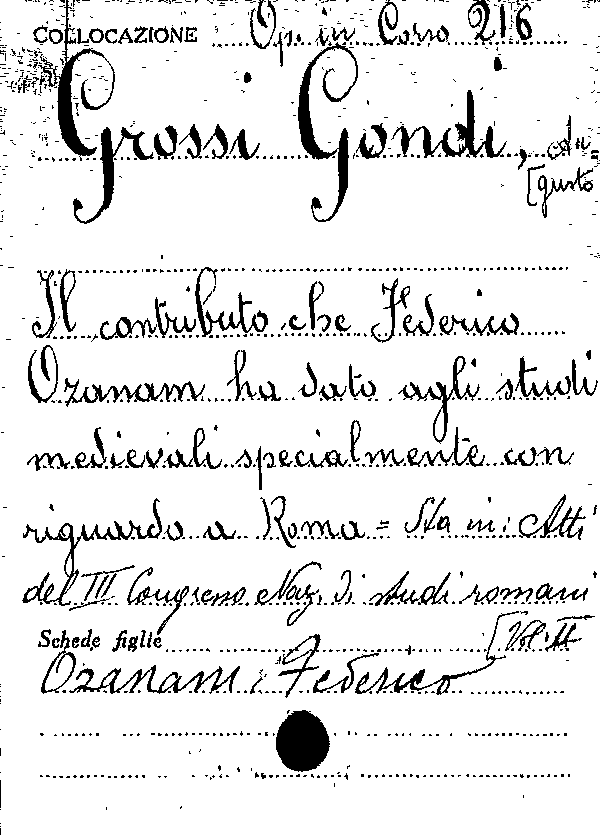 COLLOCAZIONE Op. in Corso 216
Grossi Gondi, Au=
[gusto
Il contributo che Federico
Ozanam ha dato agli studi
medievali specialmente con
riguardo a Roma = Sta in: Atti
del III Congresso Naz. di studi romani
[Vol. II
Schede figlie
Ozanam, Federico